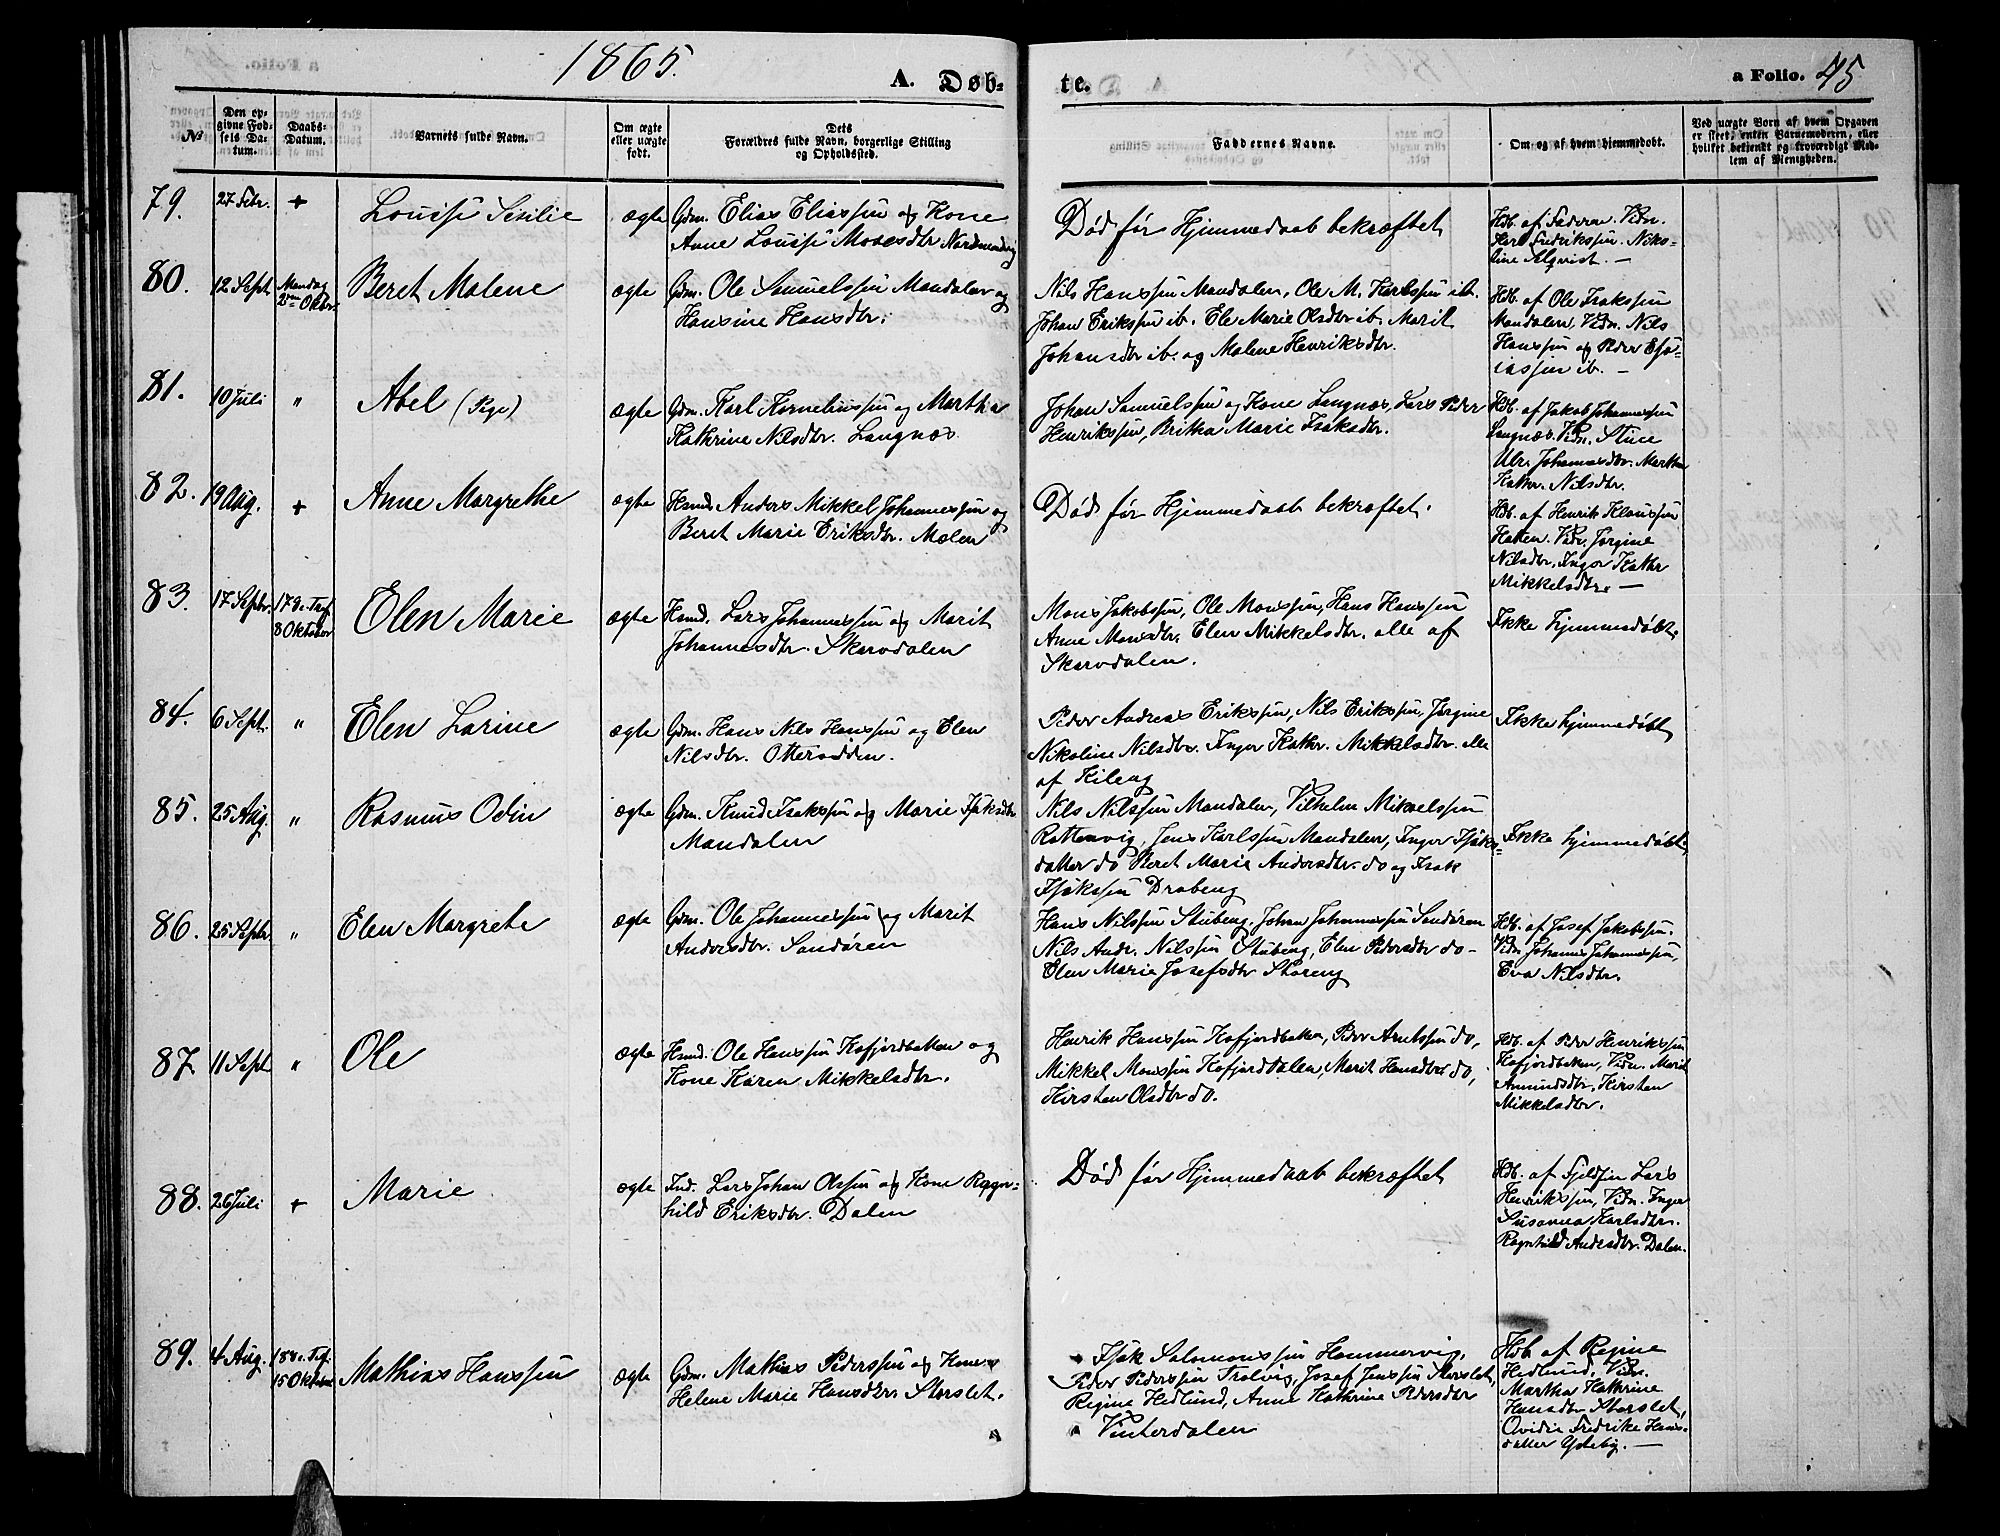 1865.
A. Døb-
te.
a Folio. 45
No
Den op-
givne Fød-
sels Da-
tum.
Daabs-
Datum.
Barnets fulde Navn.
Om ægte
eller uægte
født.
Dets
Forældres fulde Navn, borgerlige Stilling
og Opholdssted.
Faddernes Navne.
Om og af hvem hjemmedøbt.
Ved uægte Børn af hvem Opgaven
er skeet, enten Barnemoderen, eller
hvilket bekjendt og troværdigt Med-
lem af Menigheden.
79.
27 Febr.
+
Louise Sesilie
ægte
Gdm. Elias Eliassen og Kone
Anne Louise Mosesdtr Nordmandvig
Død før Hjemmedaab bekræftet
Hdb. af Faderen. Vidn.
Karl Fredrikssen. Niko-
line Alqvist. —
80.
12 Sept
Mandag
2den Oktbr.
Beret Malene
ægte
Gdm. Ole Samuelssen Mandalen og
Hansine Hansdtr.
Nils Hanssen Mandalen, Ole M. Karlssen ib.
Johan Erikssen ib. Ele Marie Olsdtr ib. Marit
Johansdtr ib. og Malene Henriksdtr.
Hdb. af Ole Isakssen
Mandalen, Vidn. Nils
Hanssen og Peder Esa-
iassen ib. —
81.
10 Juli
"
Abel (Pige)
ægte
Gdm. Karl Korneliussen og Martha
Kathrine Nilsdtr. Langnæs.
Johan Samuelssen og Kone Langnæs, Lars Peder
Henrikssen, Britha Marie Isaksdtr.
Hdb. af Jakob Johannessen
Langnæs. Vidn. Stine
Ulr. Johannesdtr. Martha
Kathr. Nilsdtr.
82.
19 Aug.
+
Anne Margrethe
ægte
Hsmd. Anders Mikkel Johannessen og
Beret Marie Eriksdtr. Mælen
Død før Hjemmedaab bekræftet.
Hdb. af Henrik Klaussen
Haken. Vidn. Jørgine
Nilsdtr. Inger Kathr
Mikkelsdtr. —
83.
17 Septbr.
17 S. e. Tref.
8 Oktober
Elen Marie
ægte
Hsmd. Lars Johannessen og Marit
Johannesdtr. Skarvdalen
Mons Jakobssen, Ole Monssen, Hans Hanssen
Anne Monsdtr. Elen Mikkelsdtr. alle af
Skarvdalen.
Ikke hjemmedøbt.
84.
6 Sept.
"
Elen Larine
ægte
Gdm. Hans Nils Hanssen og Elen
Nilsdtr. Otterodden.
Peder Andreas Erikssen, Nils Erikssen, Jørgine
Nikoline Nilsdtr. Inger Kathr. Mikkelsdtr. alle
af Kileng
Ikke hjemmedøbt
85.
25 Aug.
"
Rasmus Odin
ægte
Gdm. Knud Isakssen og Marie Isaksdtr
Mandalen
Nils Nilssen Mandalen, Vilhelm Mikaelssen
Rottenvig, Jens Karlssen Mandalen, Inger Isaks-
datter do Beret Marie Andersdtr. do og Isak
Isakssen Drabeng
Ikke hjemmedøbt.
86.
25 Septbr.
"
Elen Margrete
ægte
Gdm. Ole Johannessen og Marit
Andersdtr. Sandøren
Hans Nilssen Stubeng, Johan Johannessen Sandøren
Nils Andr. Nilssen Stubeng, Elen Pedersdtr do-
Elen Marie Josefsdtr Storeng
Hdb. af Josef Jakobssen.
Vidn Johannes Johannessen,
Eva Nilsdtr.
87.
11 Sept
"
Ole
ægte
Hsmd. Ole Hanssen Kofjordbakken og
Kone Karen Mikkelsdtr.
Henrik Hanssen Kofjordbakken, Peder Arntssen do,
Mikkel Monssen Kofjorddalen, Marit Hansdtr do,
Kirsten Olsdtr do.
Hdb. af Peder Henrikssen
Kofjordbakken, Vidn. Marit
Amundsdtr. Kirsten
Mikkelsdtr.
88.
26 Juli
+
Marie
ægte
Ind. Lars Johan Olssen og Kone Ragn-
hild Eriksdtr. Dalen
Død før Hjemmedaab bekræftet
Hdb. af Fjeldfin Lars
Henrikssen, Vidn. Inger
Susanna Karlsdtr.
Ragnhild Andersdtr. Dalen.
89.
4 Aug.
18 S. e. Tref.
15 Oktober
Mathias Hanssen
ægte
Gdm. Mathias Pederssen og Kone
Helene Marie Hansdtr. Storslet.
Isak Salomonssen Hammervig,
Peder Pederssen Trolvig, Josef Jenssen Storslet,
Regine Hedlund, Anne Kathrine Pedersdtr
Vinterdalen
Hdb af Regine
Hedlund, Vidn.
Martha Kathrine
Hansdtr Storslet,
Ovidie Fredrike Hans-
datter Yttebig. —